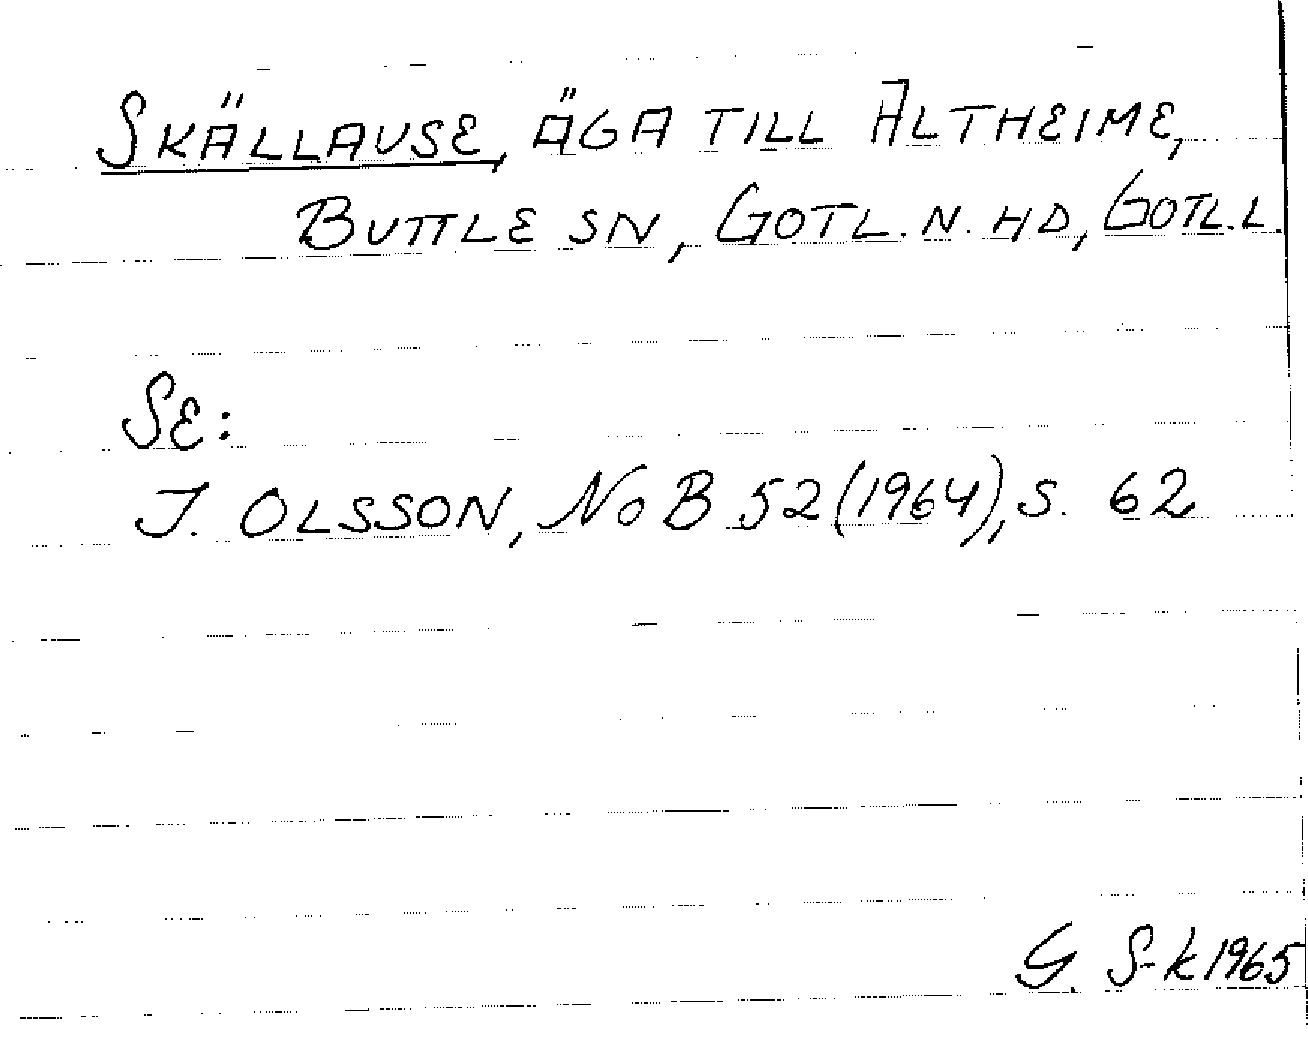 SKÄLLAUSE, ÄGA TILL ALTHEIME,
BUTTLE SN, GOTL. N. HD, GOTL.L.
SE:
I. OLSSON, NoB 52 (1964), S. 62
G. S-k 1965